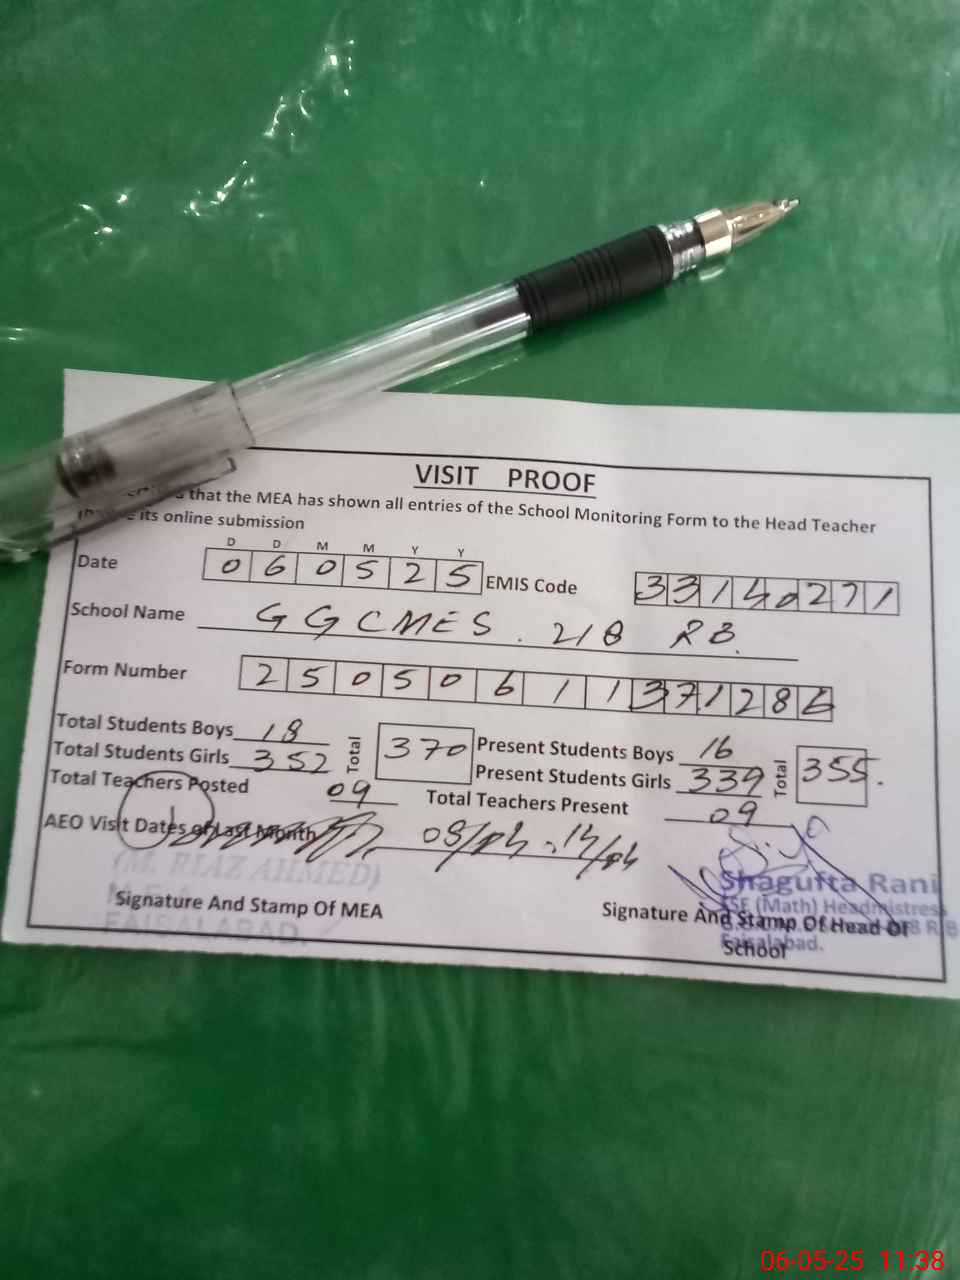 VISIT PROOF
that the MEA has shown all entries of the School Monitoring Form to the Head Teacher
its online submission
D D M M Y Y
Date 0 6 0 5 2 5 EMIS Code 3 3 1 4 0 2 7 1
School Name GGCMES. 218 RB.
Form Number 2 5 0 5 0 6 1 1 3 7 1 2 8 6
Total Students Boys 18 Total 370 Present Students Boys 16 Total 355.
Total Students Girls 352 Present Students Girls 339
Total Teachers Posted 09 Total Teachers Present 09
AEO Visit Dates of Last Month 08/04, 14/04
(M. RIAZ AHMED)
Shagufta Rani
Signature And Stamp Of MEA
SSE (Math) Headmistress
Signature And Stamp Of Head Of School
FAISALABAD.
Faisalabad.
06-05-25 11,38